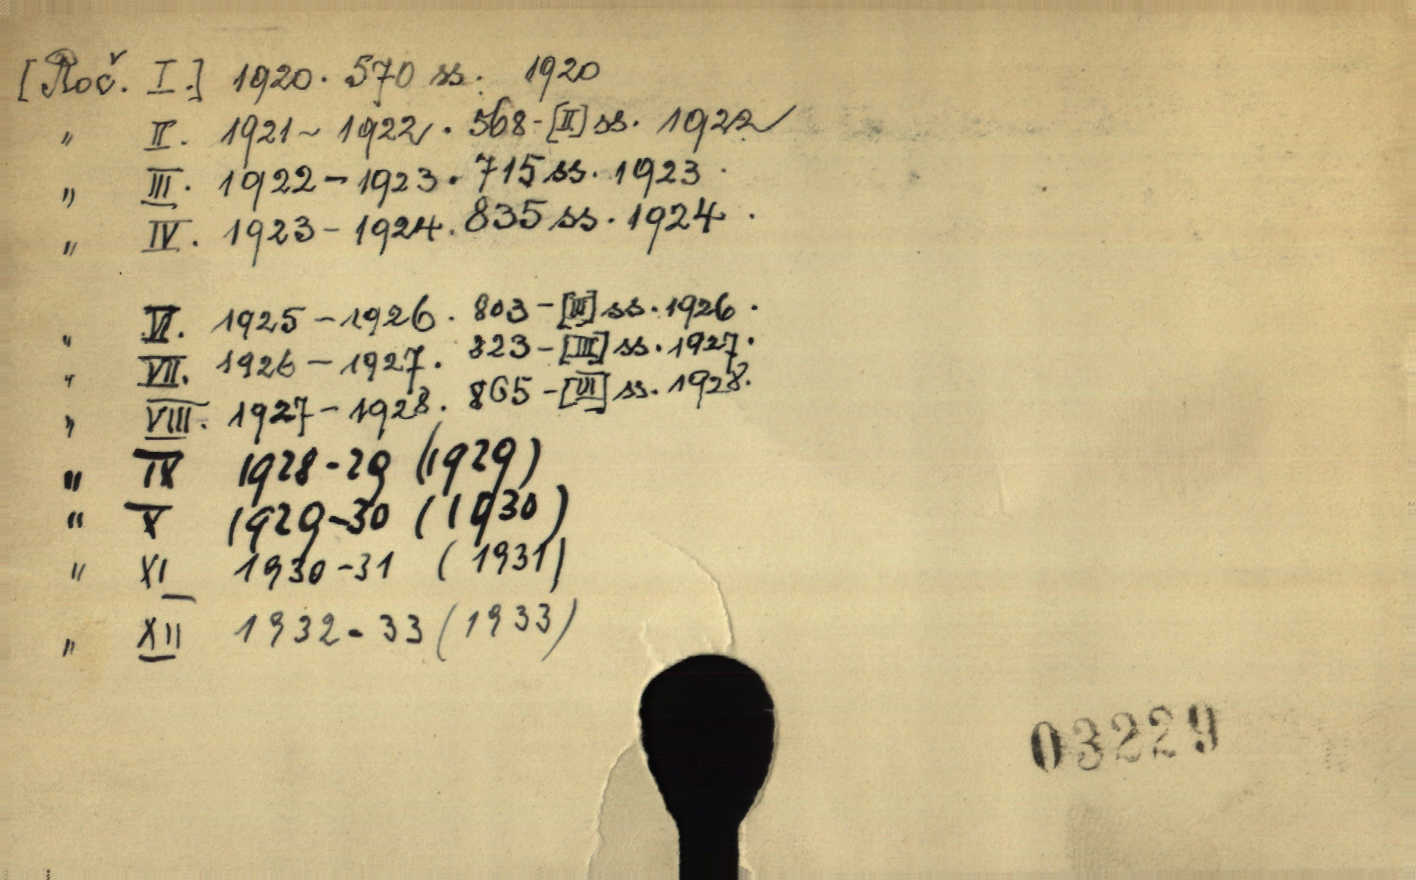 [Roč. I.] 1920. 570 ss. 1920
„ II. 1921-1922. 568-[II] ss. 1922
„ III. 1922-1923. 715 ss. 1923.
„ IV. 1923-1924. 835 ss. 1924.
„ VI. 1925-1926. 803-[III] ss. 1926.
„ VII. 1926-1927. 823-[III] ss. 1927.
„ VIII. 1927-1928. 865-[VI] ss. 1928.
„ IX 1928-29 (1929)
„ X 1929-30 (1930)
„ XI 1930-31 (1931)
„ XII 1932-33 (1933)
03229